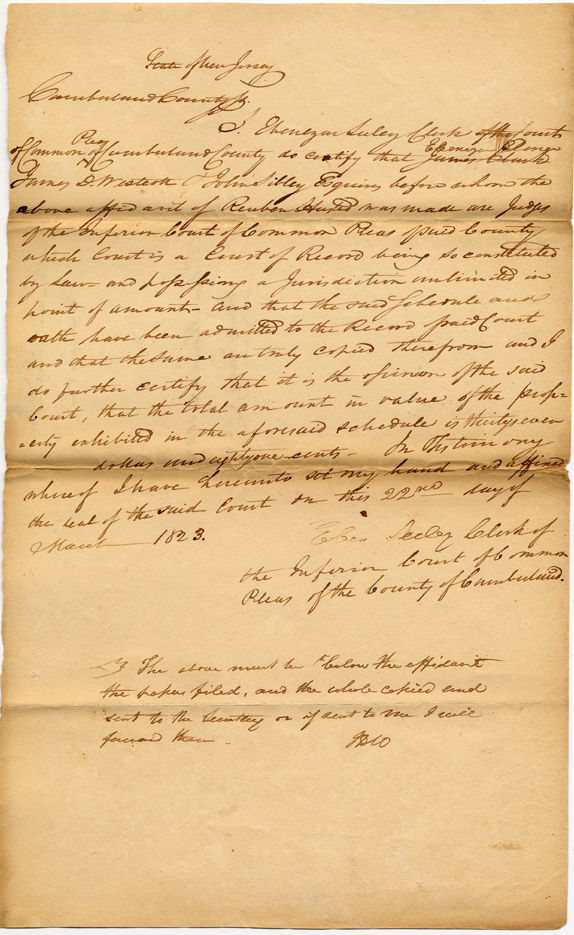 State of New Jersey
Cumberland County ss.
I Ebenezer Seeley Clerk of the Court
Pleas
of Common of Cumberland County do certify that James Clark
Ebenezer Elmer
James D Westcott & John Sibley Esquires before whom the
above affidavit of Reuben Husted was made are Judges
of the Inferior Court of Common Pleas of said County
which Court is a Court of Record being so constituted
by Law- and possessing a Jurisdiction unlimited in
point of amount- and that the said schedule and
oath have been admitted to the Record of said Court
and that the same are truly copied therefrom and I
do further certify that it is the opinion of the said
Court, that the total amount in value of the prop=
=erty exhibited in the aforesaid schedule is thirty seven
dollars and eighty one cents- In Testimony
whereof I have hereunto set my hand and affixed
the seal of the said Court on this 22nd day of
March 1823.
Eben Seeley Clerk of
the Inferior Court of Common
Pleas of the County of Cumberland.
The above must be below the affidavit
the papers filed, and the whole copied and
sent to the Secretary or if sent to me I will
forward them -
JDW